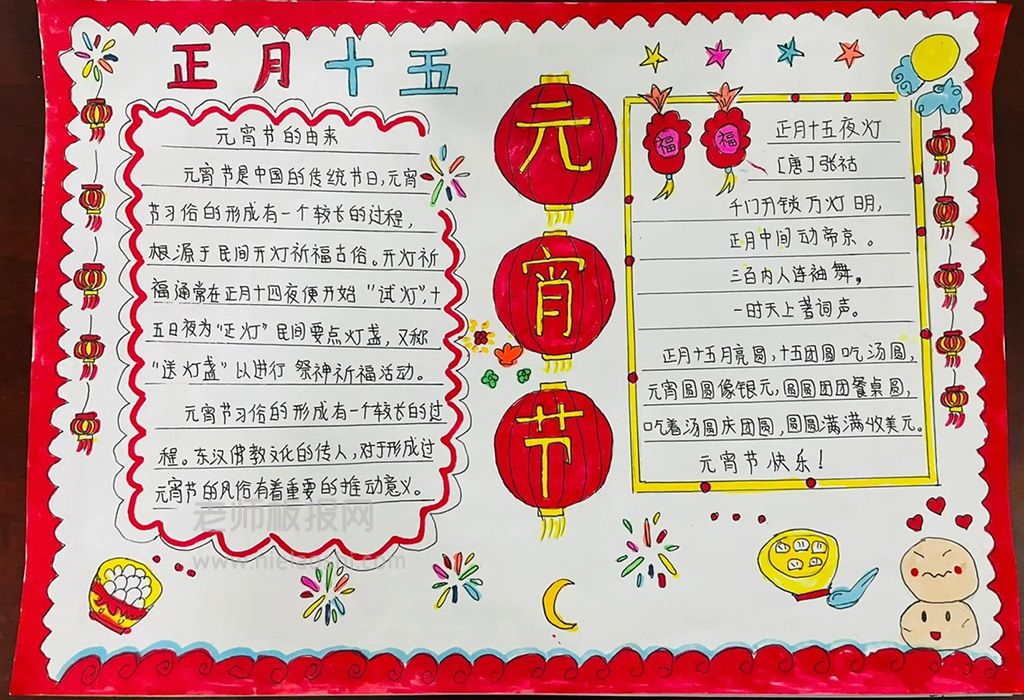 正月十五
元宵节的由来
元宵节是中国的传统节日,元宵
节习俗的形成有一个较长的过程,
根源于民间开灯祈福古俗。开灯祈
福通常在正月十四夜便开始“试灯”,十
五日夜为“正灯”民间要点灯盏,又称
“送灯盏”以进行祭神祈福活动。
元宵节习俗的形成有一个较长的过
程。东汉佛教文化的传人,对于形成过
元宵节的风俗有着重要的推动意义。
元
宵
节
福 福
正月十五夜灯
[唐]张祜
千门开锁万灯明,
正月中间动帝京。
三百内人连袖舞,
一时天上著词声。
正月十五月亮圆,十五团圆吃汤圆,
元宵圆圆像银元,圆圆团团餐桌圆,
吃着汤圆庆团圆,圆圆满满收美元。
元宵节快乐!
老师板报网